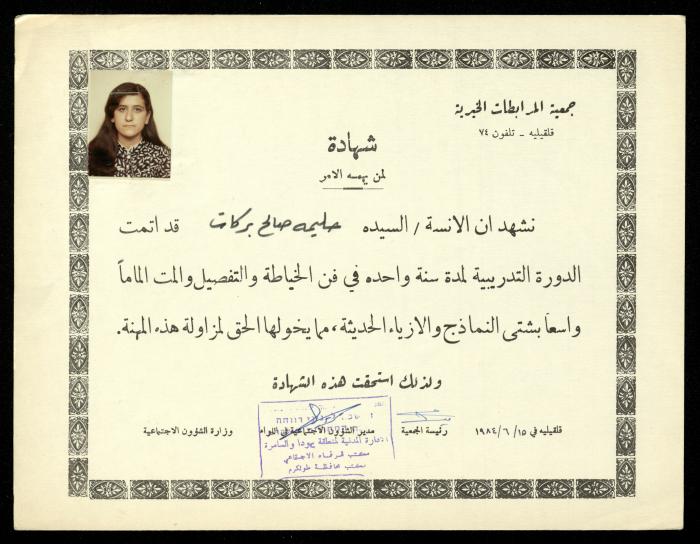 جمعية المرابطات الخيرية
قلقيليه - تلفون ٧٤
شهادة
لمن يهمه الامر
نشهد ان الانسة / السيده حليمه صالح بركات قد اتمت
الدورة التدريبية لمدة سنة واحده في فن الخياطة والتفصيل والمت الماماً
واسعاً بشتى النماذج والازياء الحديثة، مما يخولها الحق لمزاولة هذه المهنة.
ولذلك استحقت هذه الشهادة
قلقيليه في ١٥/ ٦/ ١٩٨٤ رئيسة الجمعية مدير الشؤون الاجتماعية في اللواء وزارة الشؤون الاجتماعية
الادارة المدنية لمنطقة يهودا والسامرة
مكتب الرفاه الاجتماعي
مكتب محافظة طولكرم